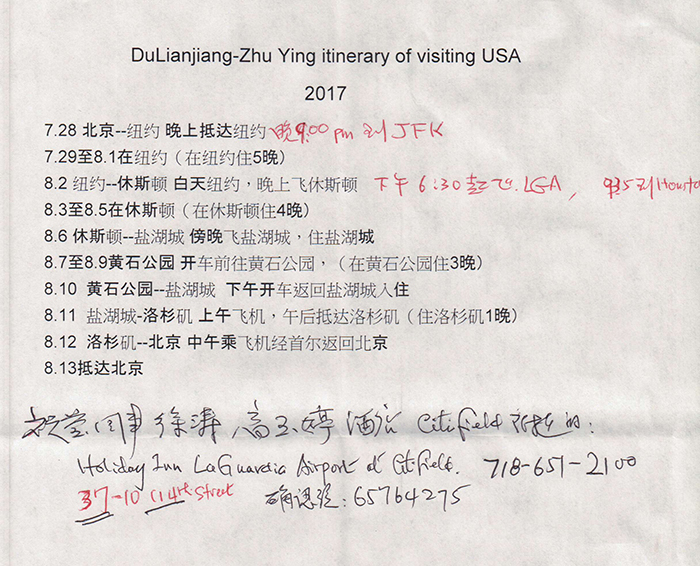 DuLianjiang-Zhu Ying itinerary of visiting USA
2017
7.28 北京--纽约 晚上抵达纽约 晚9:00 pm 到 JFK
7.29至8.1在纽约（在纽约住5晚）
8.2 纽约--休斯顿 白天纽约，晚上飞休斯顿 下午 6:30 起飞. LGA, 935到Housto
8.3至8.5在休斯顿（在休斯顿住4晚）
8.6 休斯顿--盐湖城 傍晚飞盐湖城，住盐湖城
8.7至8.9黄石公园 开车前往黄石公园，（在黄石公园住3晚）
8.10 黄石公园--盐湖城 下午开车返回盐湖城入住
8.11 盐湖城-洛杉矶 上午飞机，午后抵达洛杉矶（住洛杉矶1晚）
8.12 洛杉矶--北京 中午乘飞机经首尔返回北京
8.13抵达北京
同事 徐涛 高玉婷 酒店 Citifield 附近的:
Holiday Inn LaGuardia Airport at Citifield. 718-651-2100
37-10 114th Street 确认号: 65764275